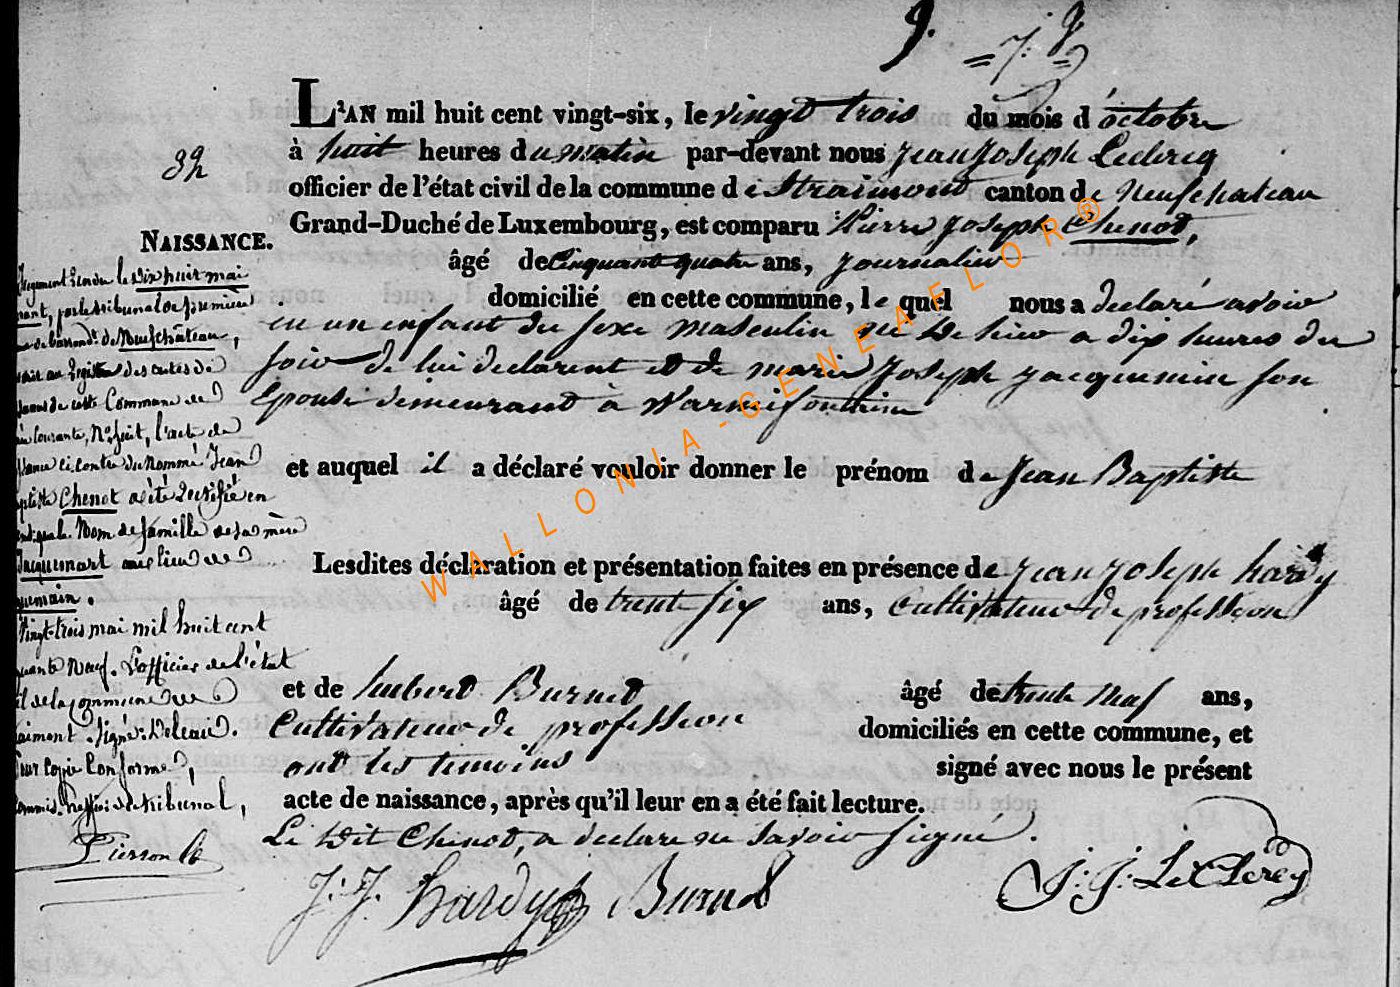 9.
= 7. 8 =
L'AN mil huit cent vingt-six, le vingt trois du mois d'octobre
à huit heures du matin par-devant nous jean joseph Leclercq
officier de l'état civil de la commune de Straimont canton de Neufchateau
Grand-Duché de Luxembourg, est comparu Pierre Joseph Chenot,
âgé de cinquant quatre ans, journalier
domicilié en cette commune, le quel nous a declaré avoir
eu un enfant du sexe masculin né de hier a dix heures du
soir de lui declarant et de marie Joseph jacquemin son
Epouse demeurant à Warmifontaine
et auquel il a déclaré vouloir donner le prénom de Jean Baptiste
Lesdites déclaration et présentation faites en présence de jean joseph hardy
âgé de trente six ans, Cultivateur de profession
et de hubert Burnet âgé de trente neuf ans,
Cultivateur de profession domiciliés en cette commune, et
ont les temoins signé avec nous le présent
acte de naissance, après qu'il leur en a été fait lecture.
Le dit Chenot, a declaré ne savoir signé.
J: J. Hardy Burnet J: J: LeClercq
32
NAISSANCE.
Jugement rendu le dix huit mai
par le tribunal de première
de Neufchâteau,
au registre des actes de
de cette Commune de
Courante, No. huit, l'acte de
ci contre du nommé Jean
Chenot a été rectifié en
nom de famille de sa mère
Jacquenart au lieu de
Vingt-trois mai mil huit cent
neuf. L'officier de l'état
de la commune de
signé: Deleau.
Pour copie conforme,
Greffier du tribunal,
Pierson
WALLONIA-GENEAFLOR®